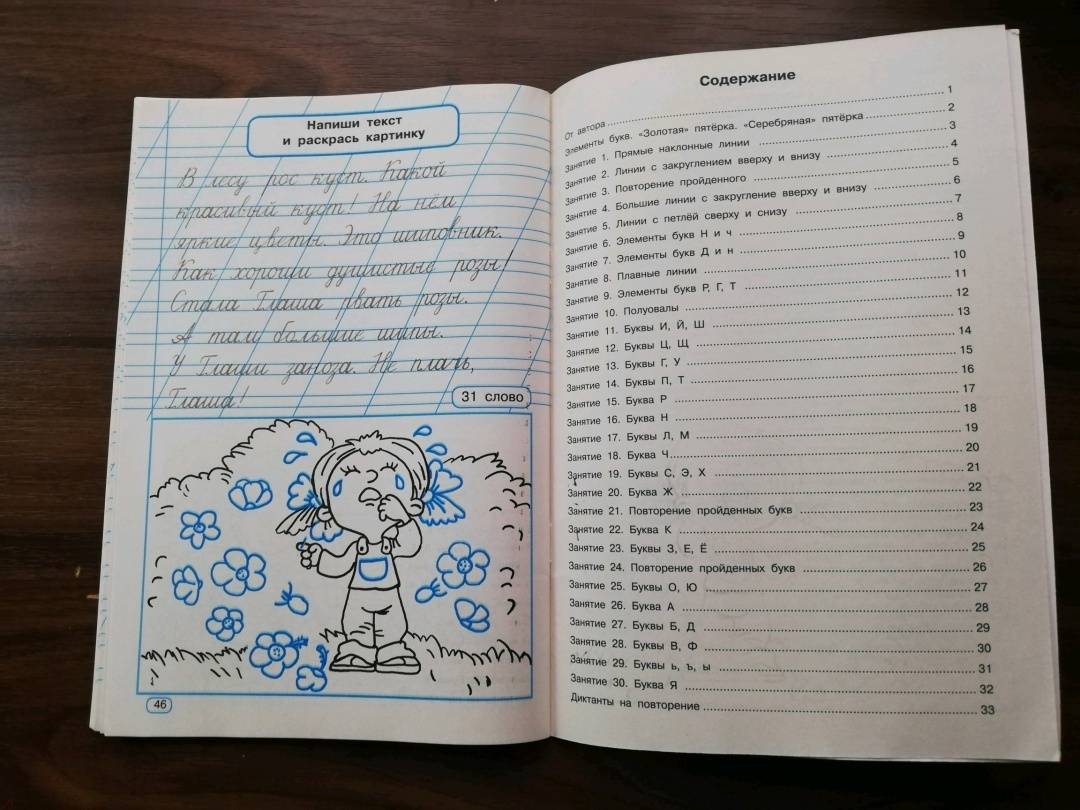 Напиши текст
и раскрась картинку
В лесу рос куст. Какой
красивый куст! На нём
яркие цветы. Это шиповник.
Как хороши душистые розы!
Стала Глаша рвать розы.
А там большие шипы.
У Глаши заноза. Не плачь,
Глаша!
31 слово
46
Содержание
От автора 1
Элементы букв. «Золотая» пятёрка. «Серебряная» пятёрка 2
Занятие 1. Прямые наклонные линии 3
Занятие 2. Линии с закруглением вверху и внизу 4
Занятие 3. Повторение пройденного 5
Занятие 4. Большие линии с закругление вверху и внизу 6
Занятие 5. Линии с петлёй сверху и снизу 7
Занятие 6. Элементы букв Н и ч 8
Занятие 7. Элементы букв Д и н 9
Занятие 8. Плавные линии 10
Занятие 9. Элементы букв Р, Г, Т 11
Занятие 10. Полуовалы 12
Занятие 11. Буквы И, Й, Ш 13
Занятие 12. Буквы Ц, Щ 14
Занятие 13. Буквы Г, У 15
Занятие 14. Буквы П, Т 16
Занятие 15. Буква Р 17
Занятие 16. Буква Н 18
Занятие 17. Буквы Л, М 19
Занятие 18. Буква Ч 20
Занятие 19. Буквы С, Э, Х 21
Занятие 20. Буква Ж 22
Занятие 21. Повторение пройденных букв 23
Занятие 22. Буква К 24
Занятие 23. Буквы З, Е, Ё 25
Занятие 24. Повторение пройденных букв 26
Занятие 25. Буквы О, Ю 27
Занятие 26. Буква А 28
Занятие 27. Буквы Б, Д 29
Занятие 28. Буквы В, Ф 30
Занятие 29. Буквы ь, ъ, ы 31
Занятие 30. Буква Я 32
Диктанты на повторение 33